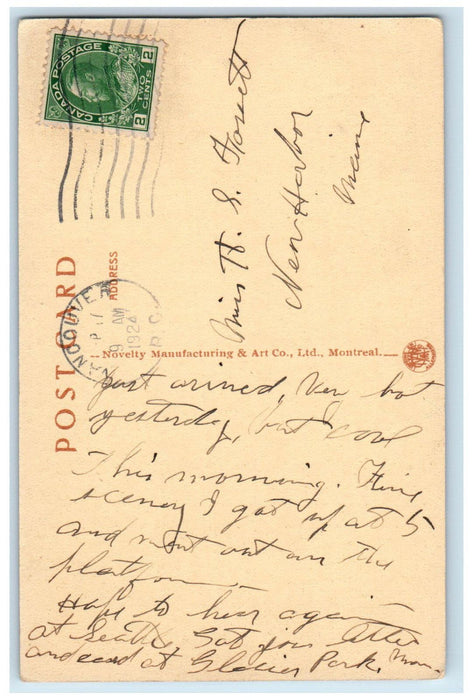 CANADA POSTAGE
2 TWO 2
CENTS
POST CARD
ADDRESS
VANCOUVER
9 AM
1924
B.C.
Miss H. S. Fossett
New Harbor
Maine
Novelty Manufacturing & Art Co., Ltd., Montreal.
Just arrived, Very hot
yesterday, but cool
This morning. Fine
scenery I got up at 5
and went out on the
platform
Hope to hear again
at Seattle Got your letter
and card at Glacier Park,